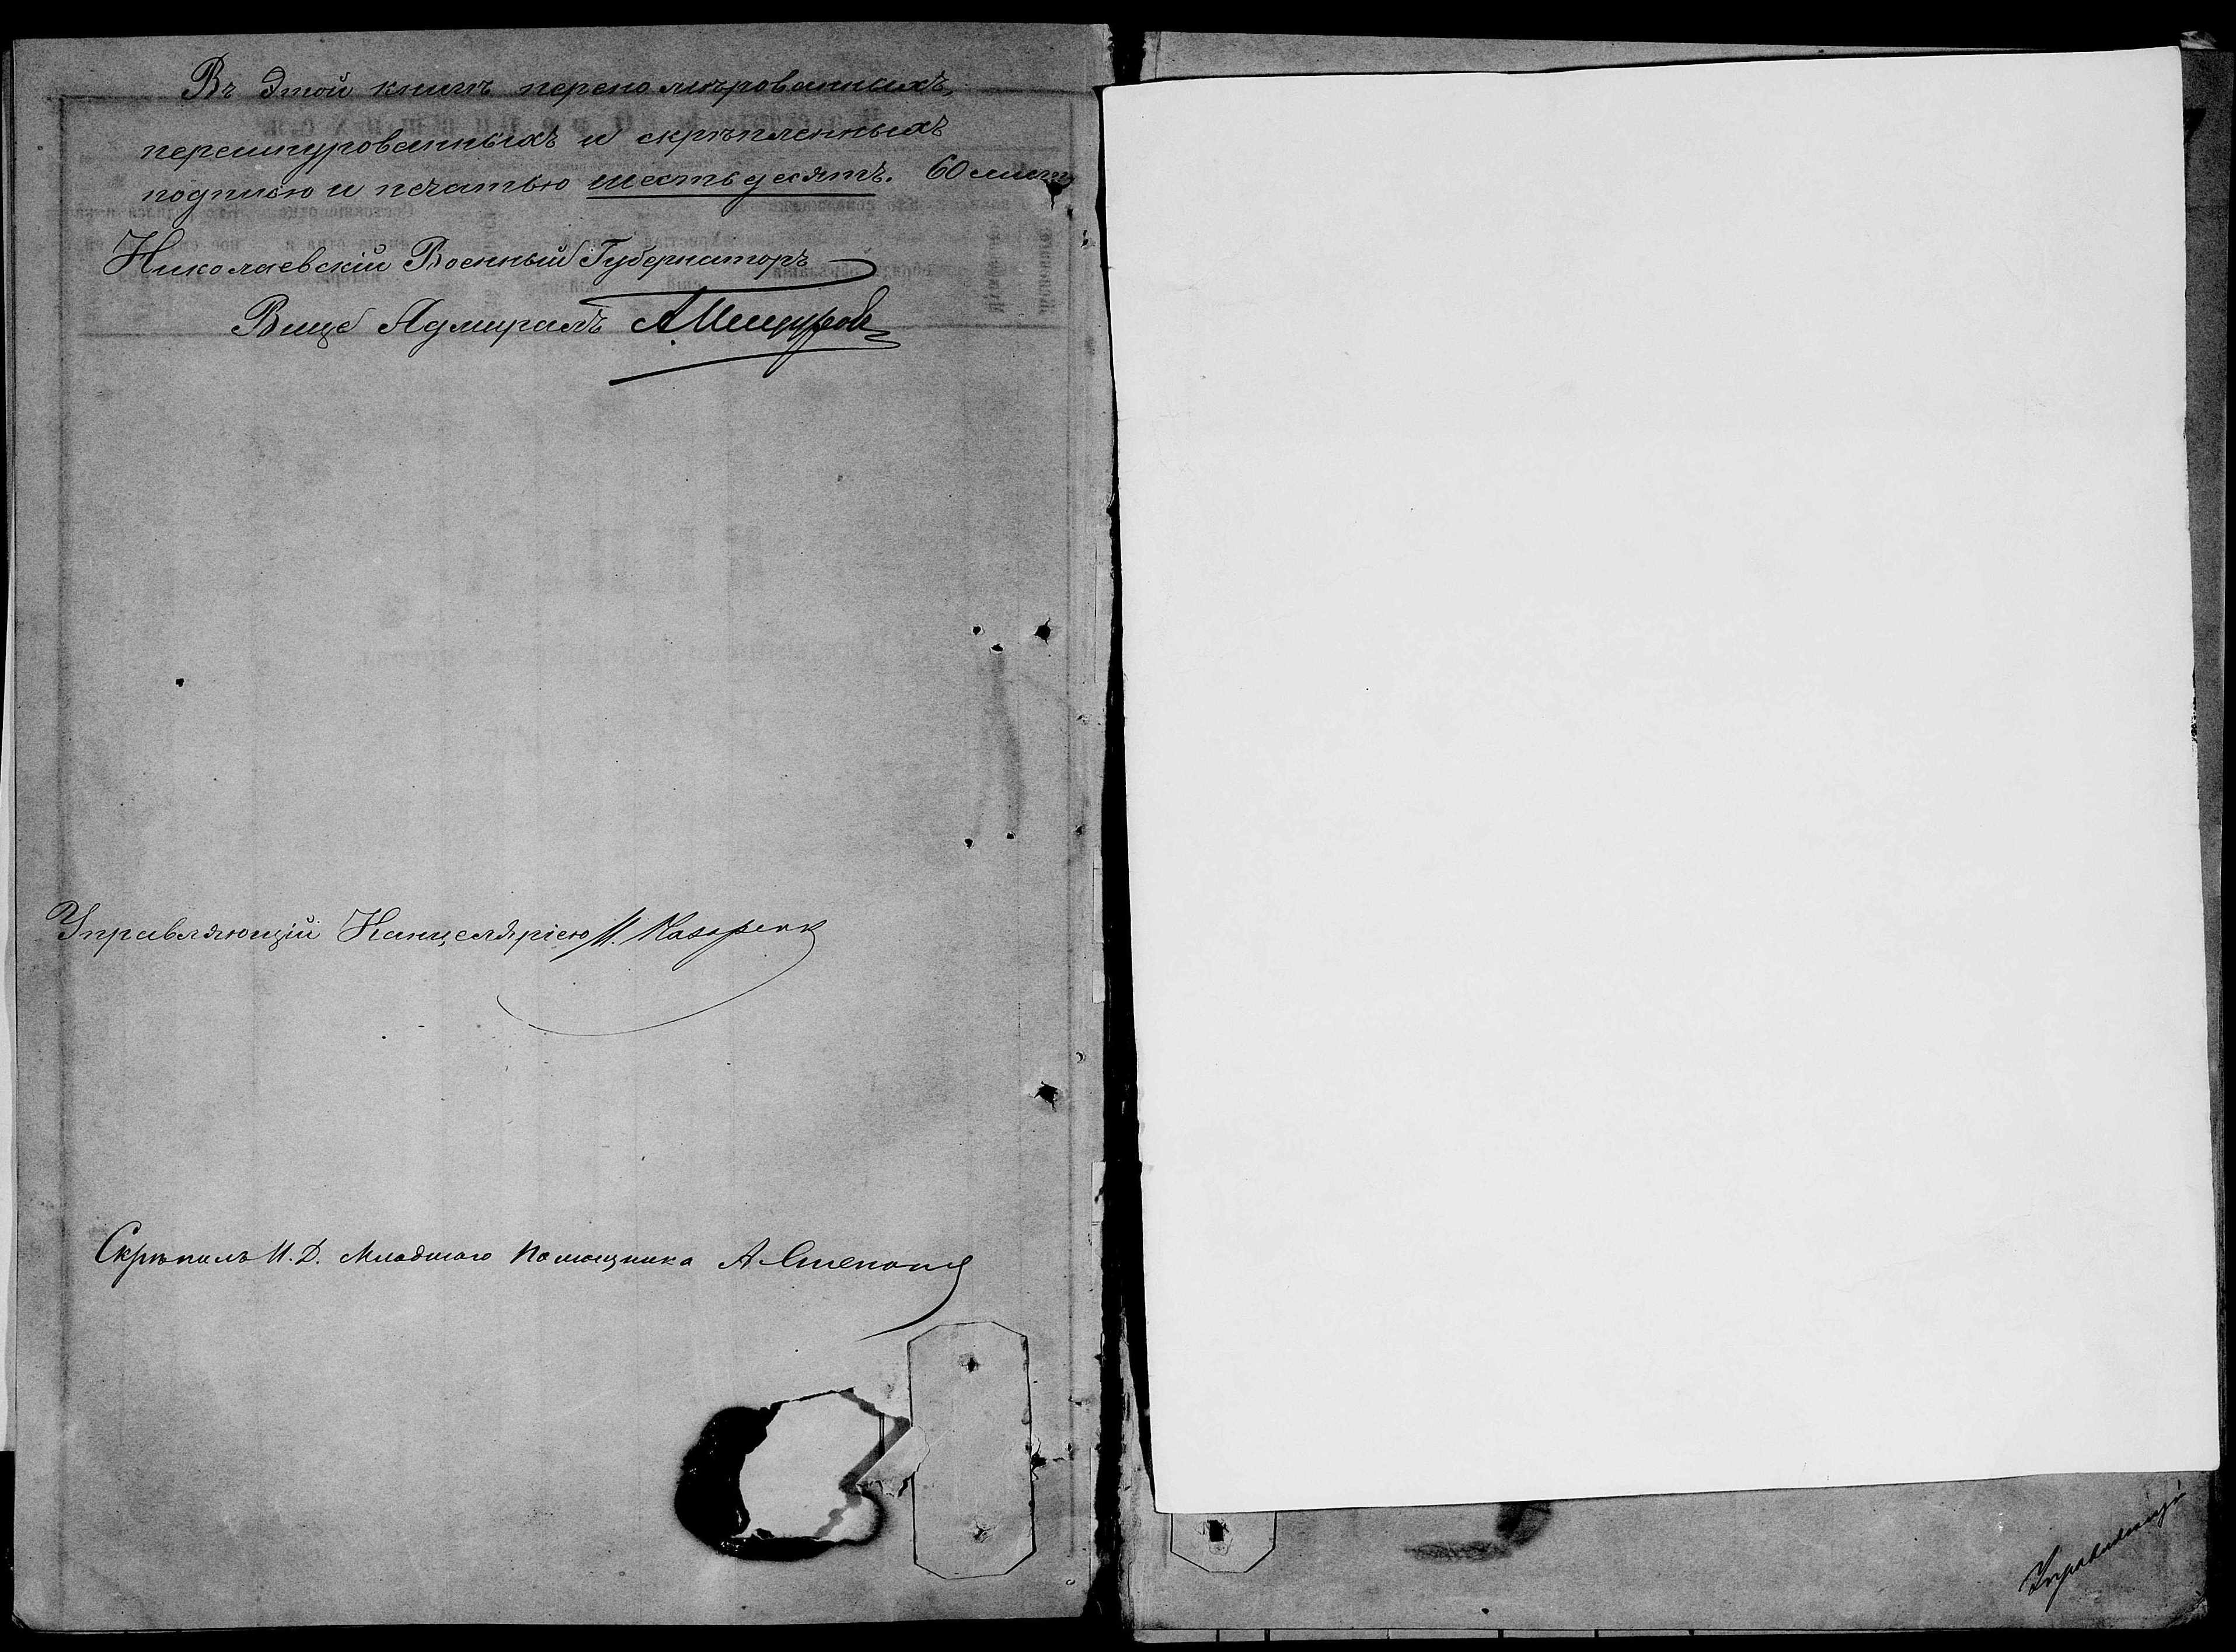 Въ Этой книгѣ переномѣрованныхъ,
перешнурованныхъ и скрѣпленныхъ
подписью и печатью шестьдесятъ. 60 листъ
Николаевскій Военный Губернаторъ
Вице Адмиралъ А Пещуровъ
Управляющій Канцеляріею
Скрѣпилъ И.Д. Младшаго Помощника А Степано
Управляющій